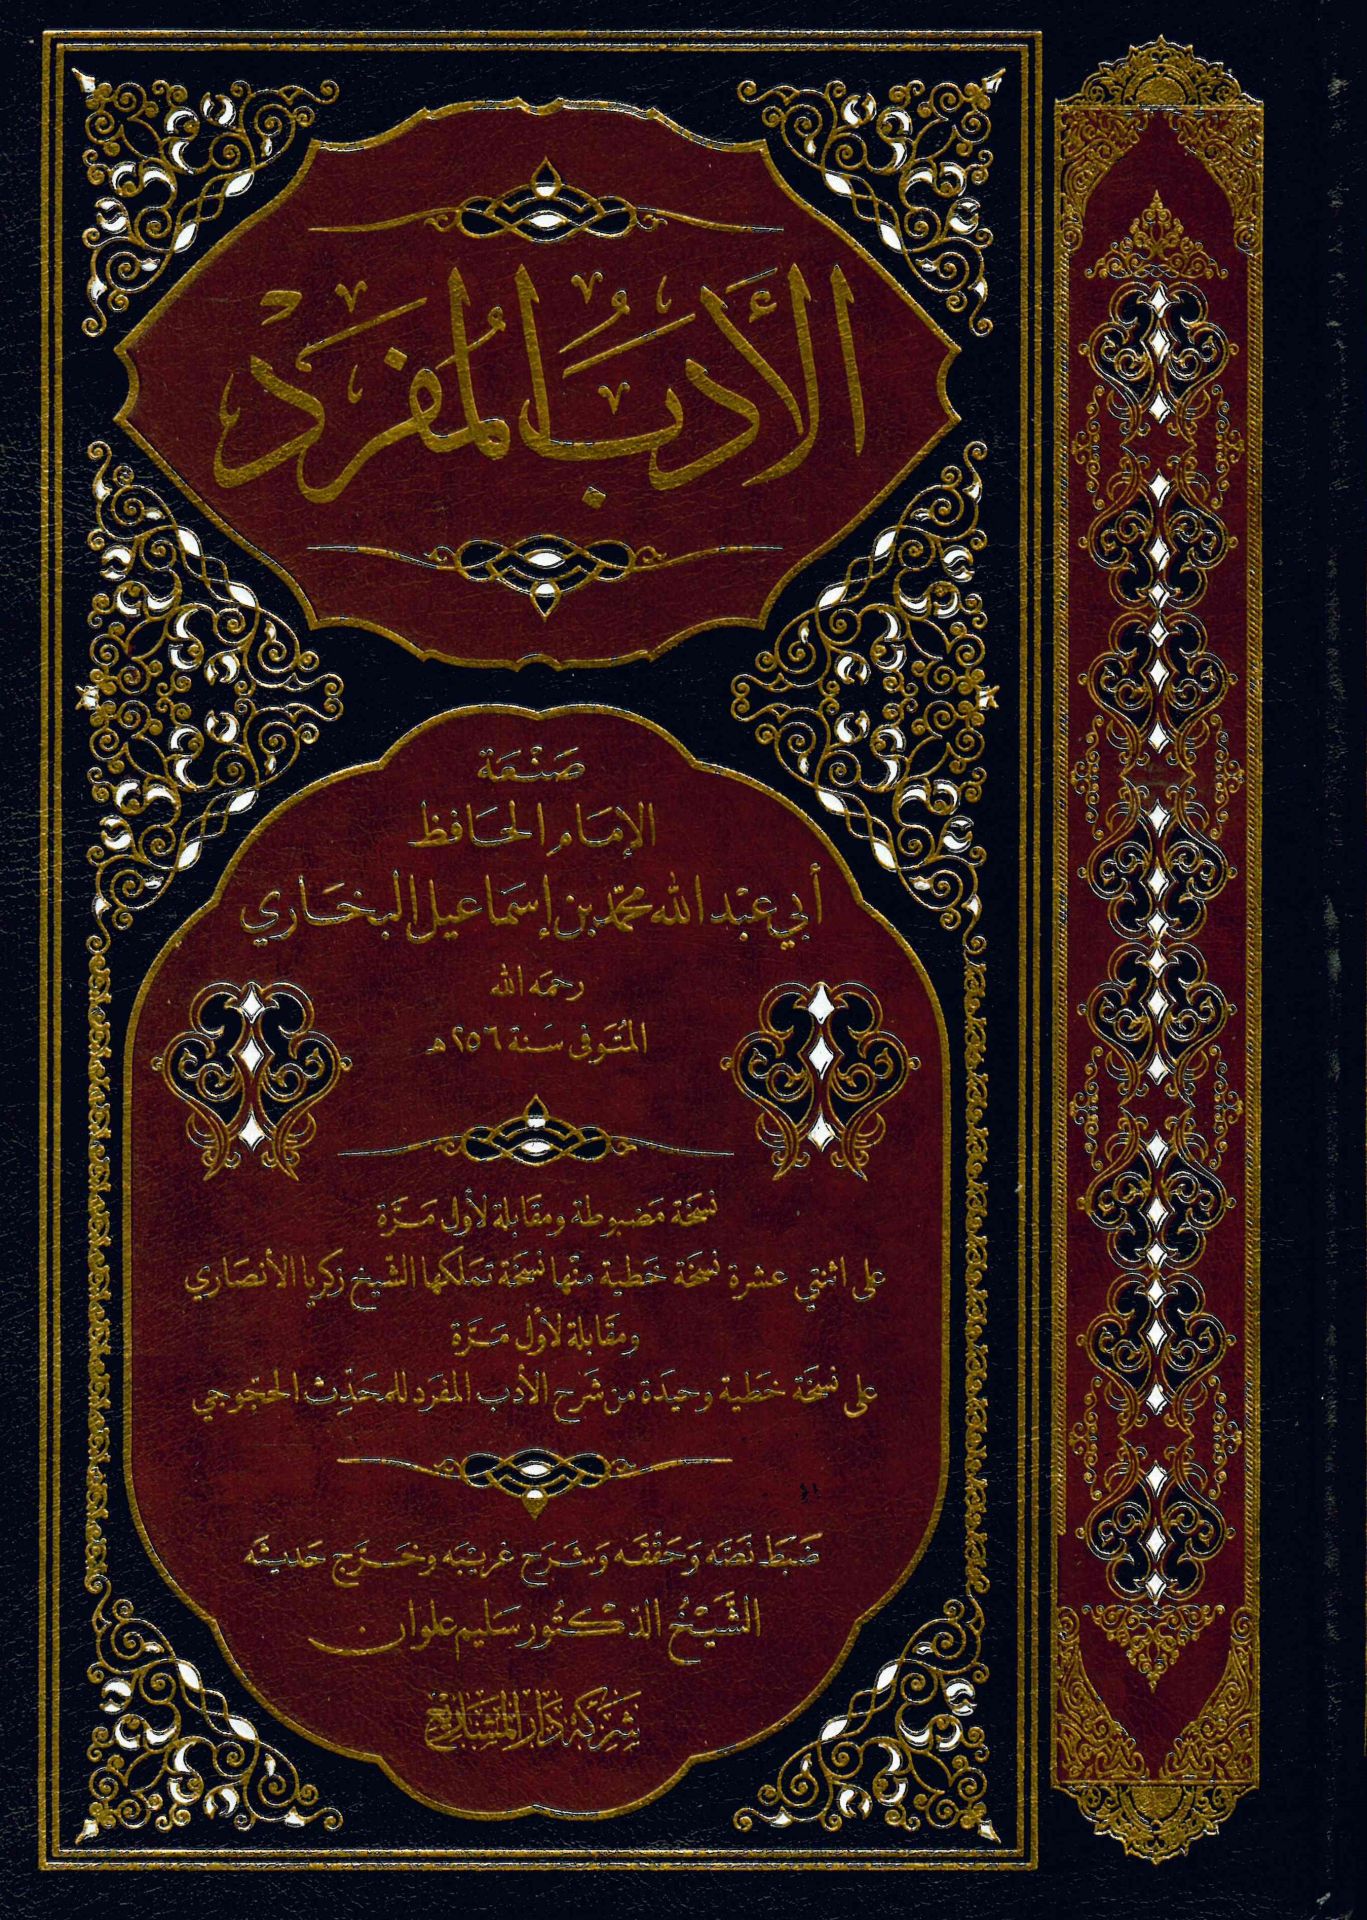 الأَدَبُ المُفرَد
صَنْعَة
الإمَام الحَافِظ
أبي عَبْد الله محمّد بن إسمَاعيل البخَاري
رحمَه الله
المُتوَفى سَنة ٢٥٦ هـ
نسخَة مَضبوطة ومقَابلة لأول مَرّة
على اثنتي عشرة نسخَة خَطية منْها نسخَة تملكها الشّيخ زكريا الأنصَاري
ومقَابلة لأول مَرّة
على نسخَة خطية وحيدة من شَرح الأدب المفرَد للمحَدِّث الحَجّوجي
ضبَط نَصّه وَحَقّقه وَشَرَح غريبَه وخَرّج حَديثَه
الشَّيْخُ الدّكتُور سَليم علوان
شَرِكَة دَار المشَاريع